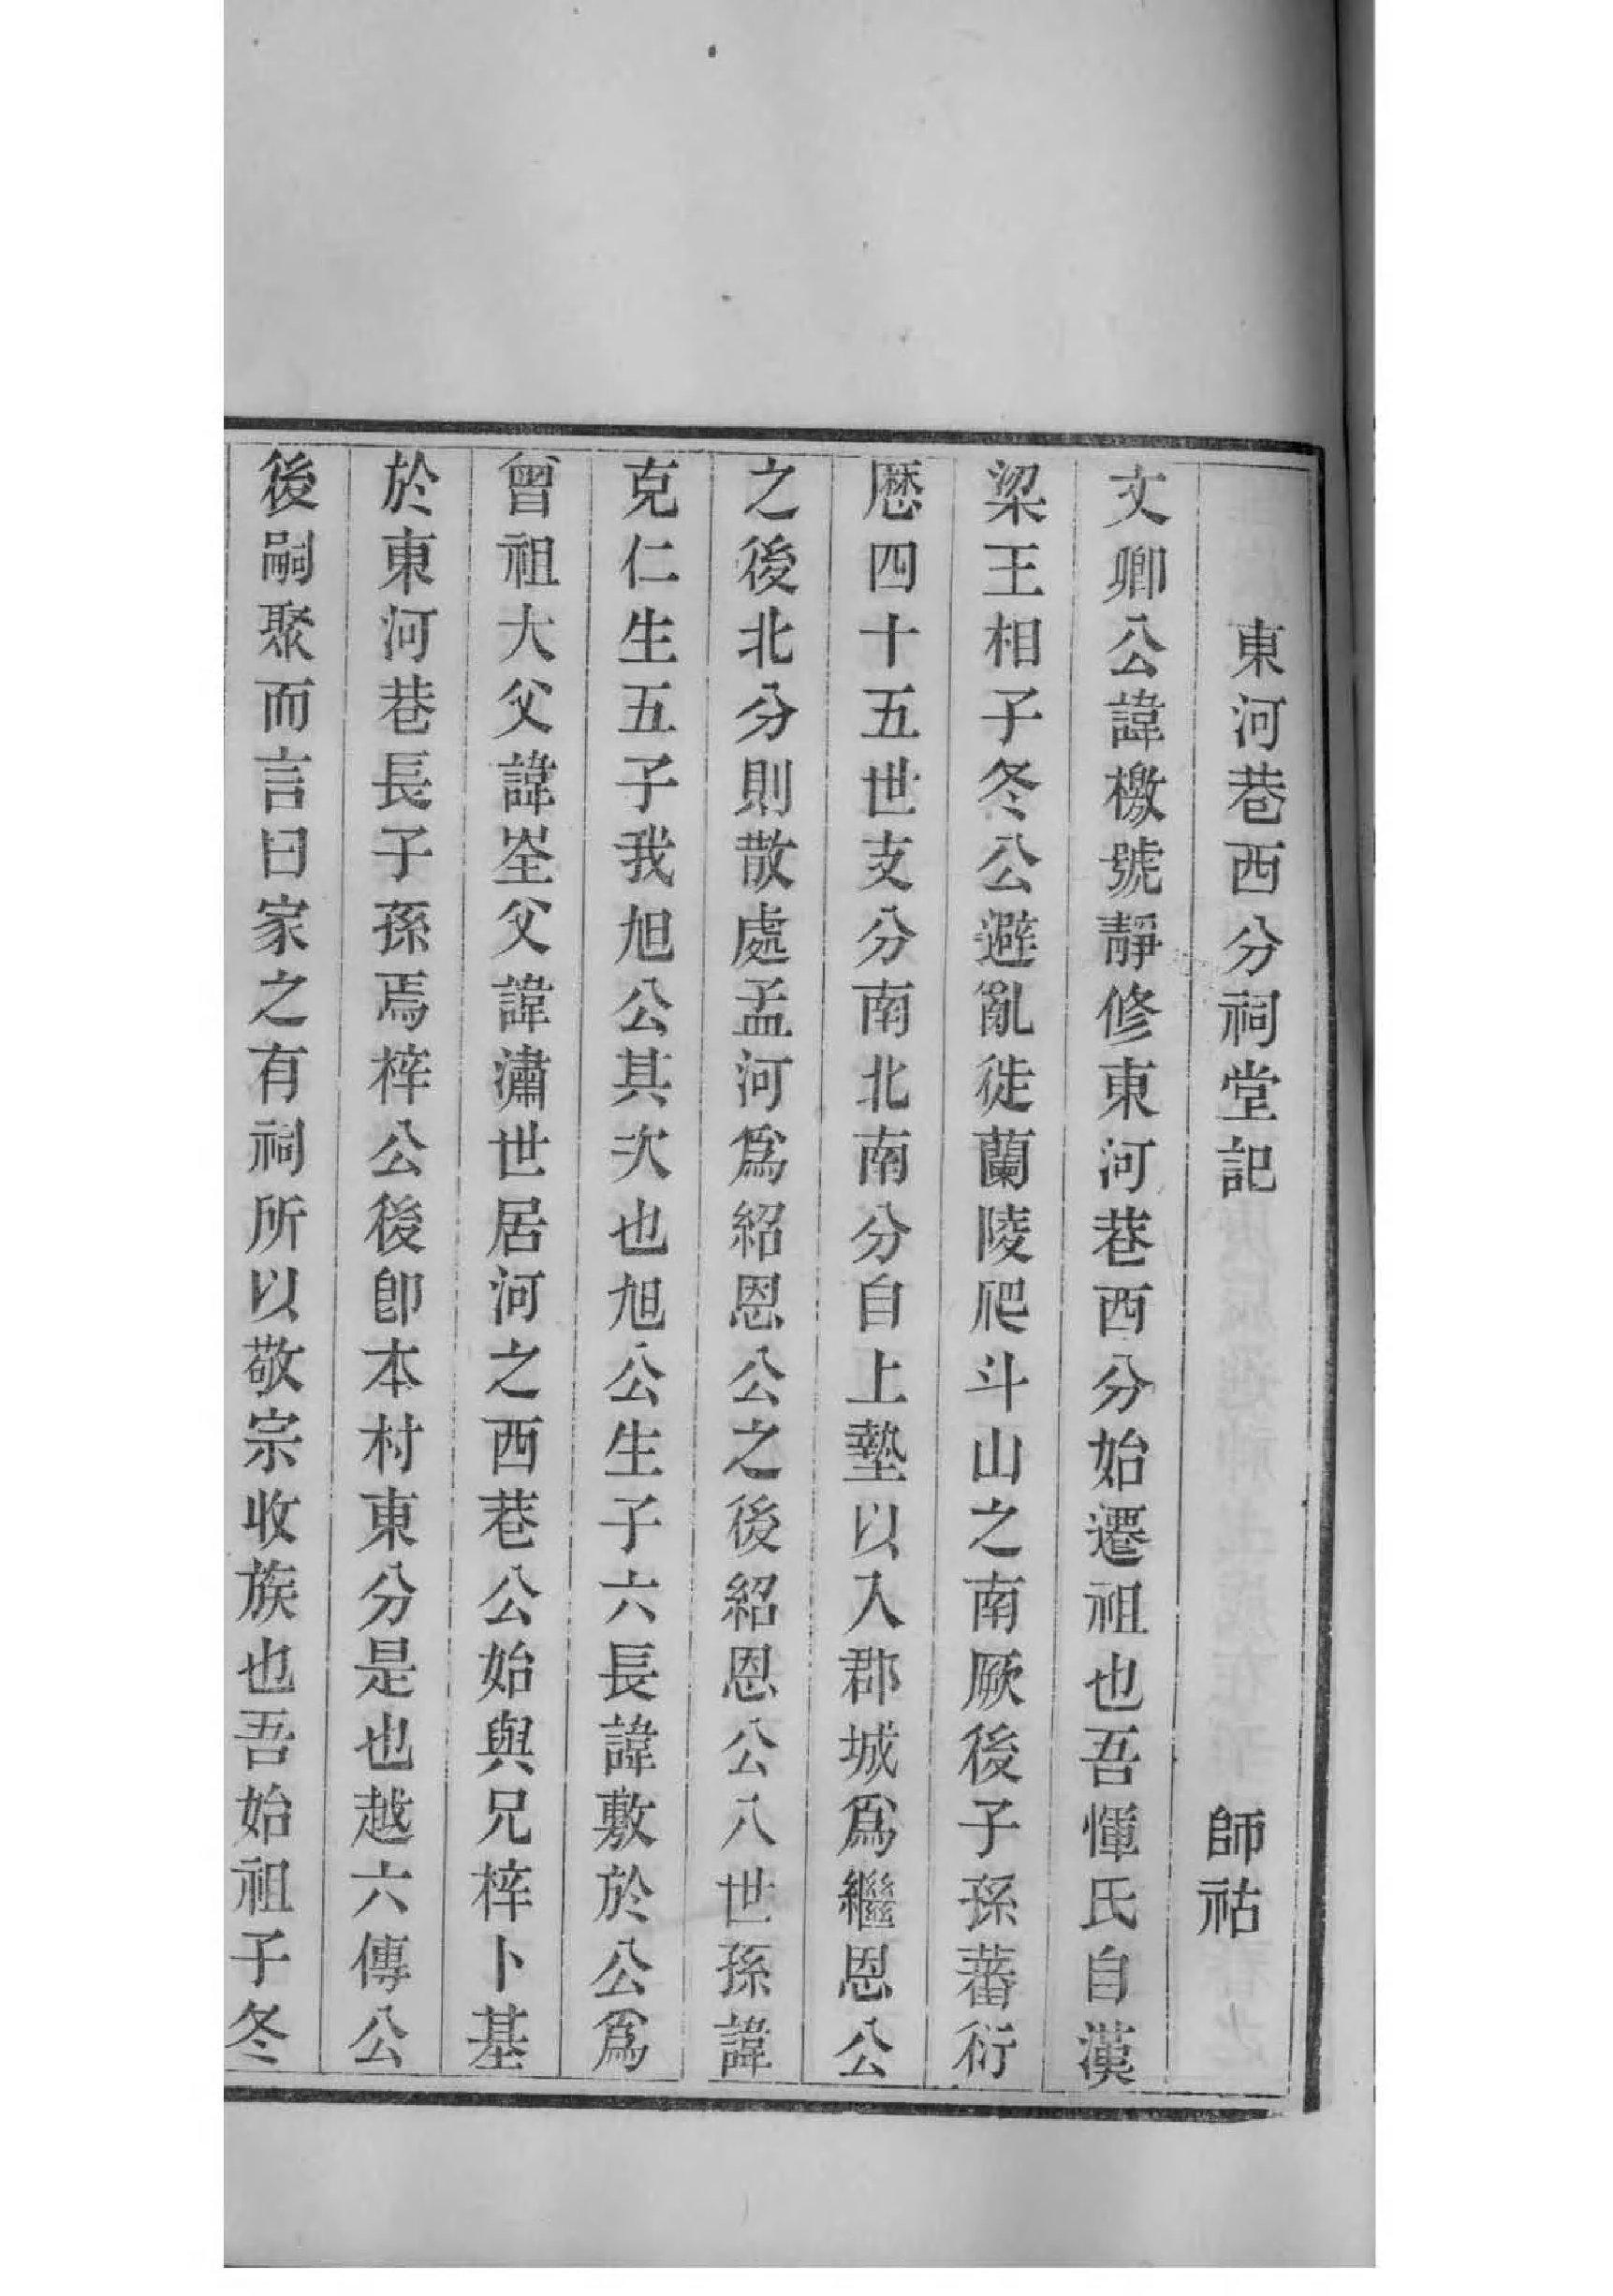 東河巷西分祠堂記 師祜
文卿公諱檄號靜修東河巷西分始遷祖也吾惲氏自漢
梁王相子冬公避亂徙蘭陵爬斗山之南厥後子孫蕃衍
歷四十五世支分南北南分自上墊以入郡城爲繼恩公
之後北分則散處孟河爲紹恩公之後紹恩公八世孫諱
克仁生五子我旭公其次也旭公生子六長諱敷於公爲
曾祖大父諱峑父諱瀟世居河之西巷公始與兄梓卜基
於東河巷長子孫焉梓公後卽本村東分是也越六傳公
後嗣聚而言曰家之有祠所以敬宗收族也吾始祖子冬